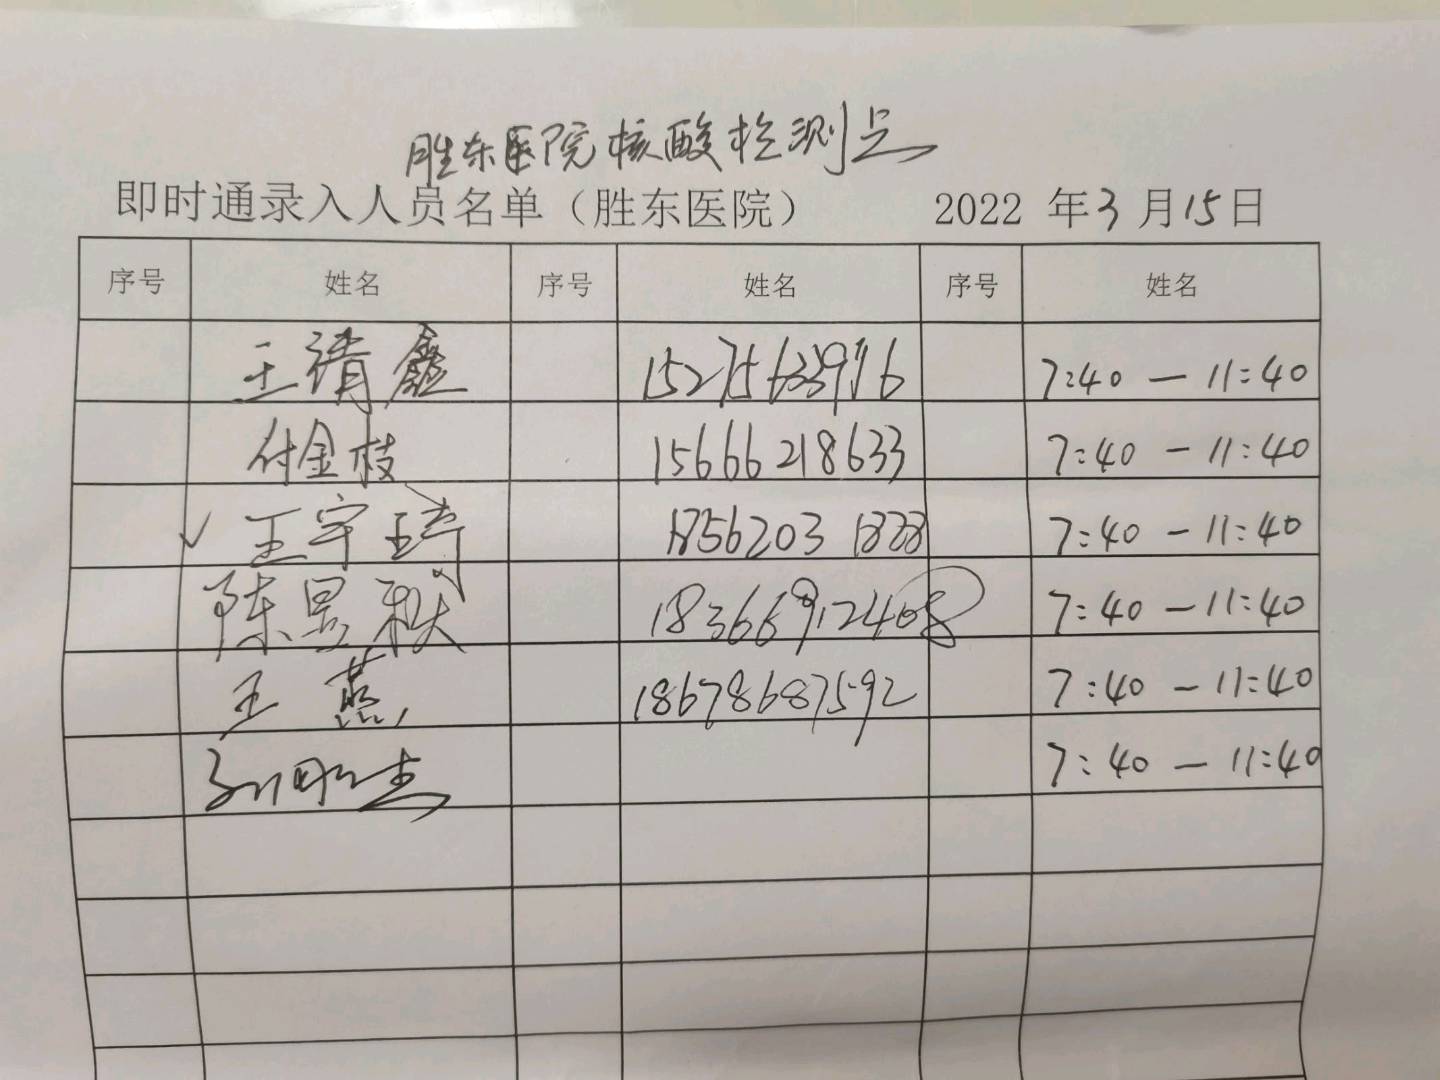 胜东医院核酸检测点
即时通录入人员名单（胜东医院） 2022 年3月15日
序号 姓名 序号 姓名 序号 姓名
王清鑫 7:40 — 11:40
付金枝 15666218633 7:40 — 11:40
✓ 王宇琦 18562031828 7:40 — 11:40
陈昱秩 7:40 — 11:40
王燕 18678687592 7:40 — 11:40
7:40 — 11:40